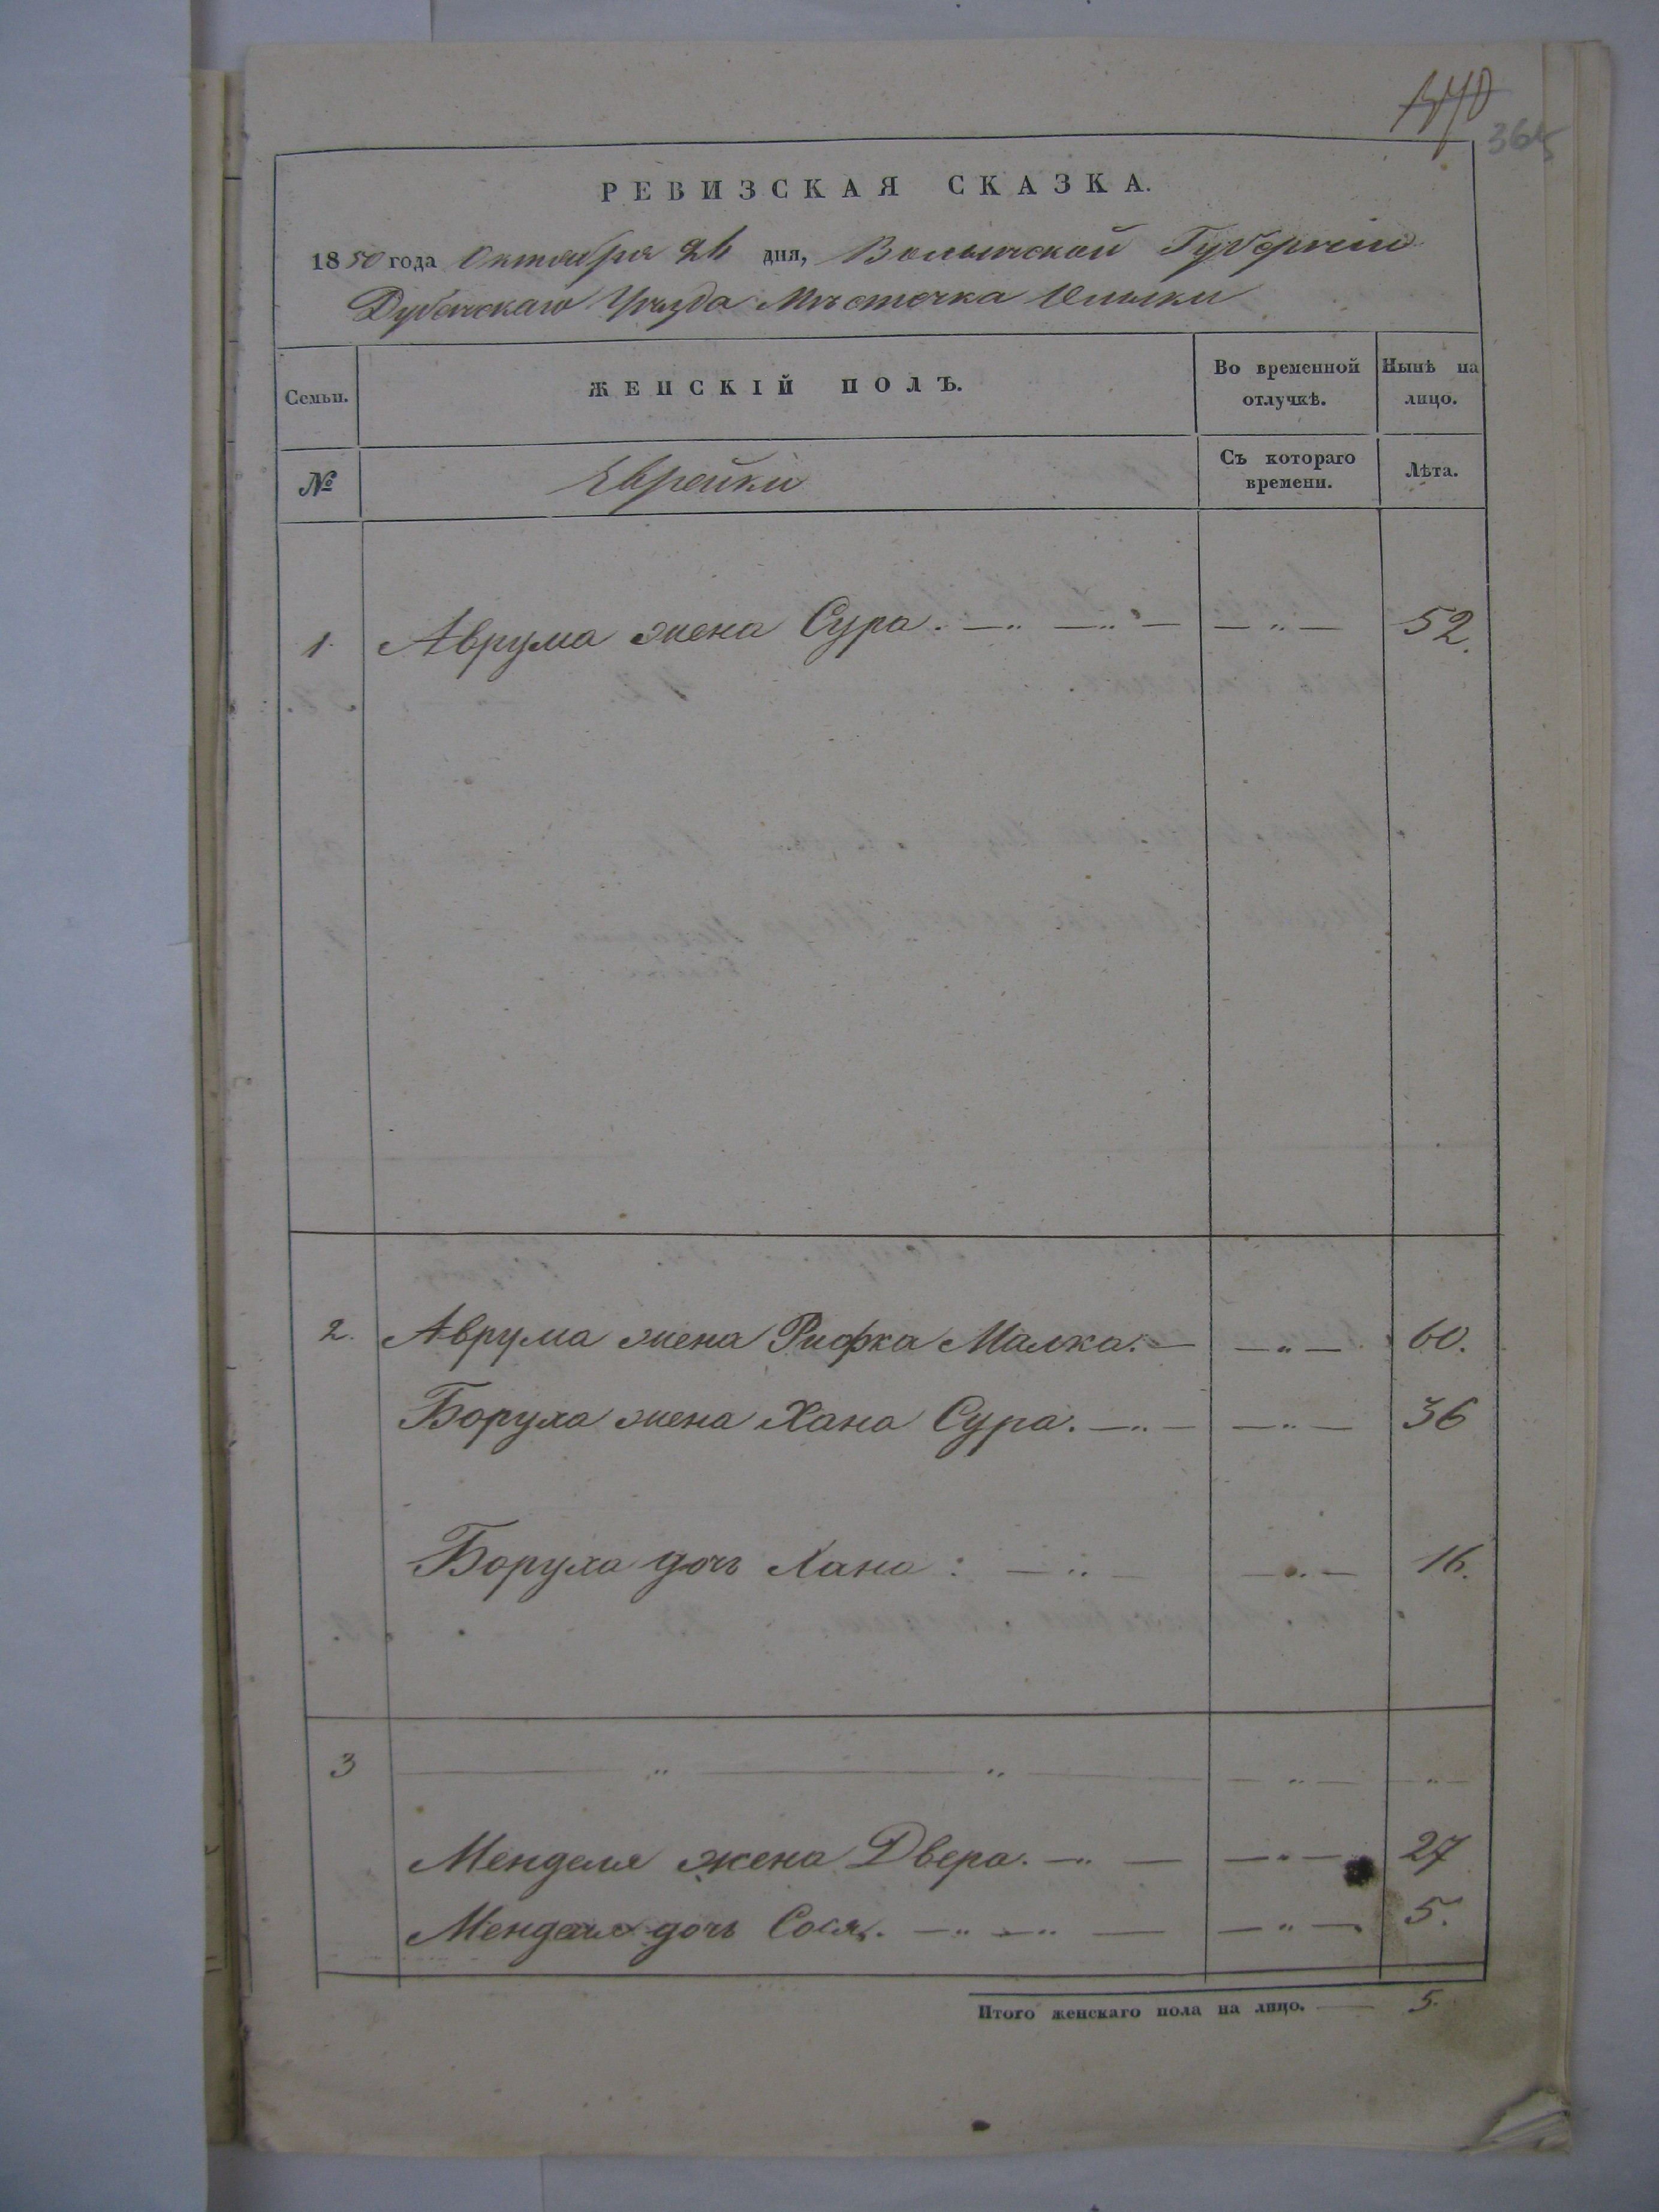 365
РЕВИЗСКАЯ СКАЗКА.
1850 года Октября 24 дня, Волынской Губернии
Дубенскаго Уѣзда Мѣстечка Олыки
Семьи.
ЖЕНСКІЙ ПОЛЪ.
Во временной отлучкѣ.
Нынѣ на лицо.
№
Еврейки
Съ котораго времени.
Лѣта.
1. Аврума жена Сура. — „ — „ — — „ — 52.
2. Аврума жена Рифка Малка. — — „ — 60.
Боруха жена Хана Сура. — „ — — „ — 36
Боруха дочь Хана : — „ — — „ — 16.
3 — „ — „ — — „ — — „ —
Менделя жена Двера. — „ — — „ — 27
Менделя дочь Сося. — „ — „ — — „ — 5.
Итого женскаго пола на лицо. — 5.